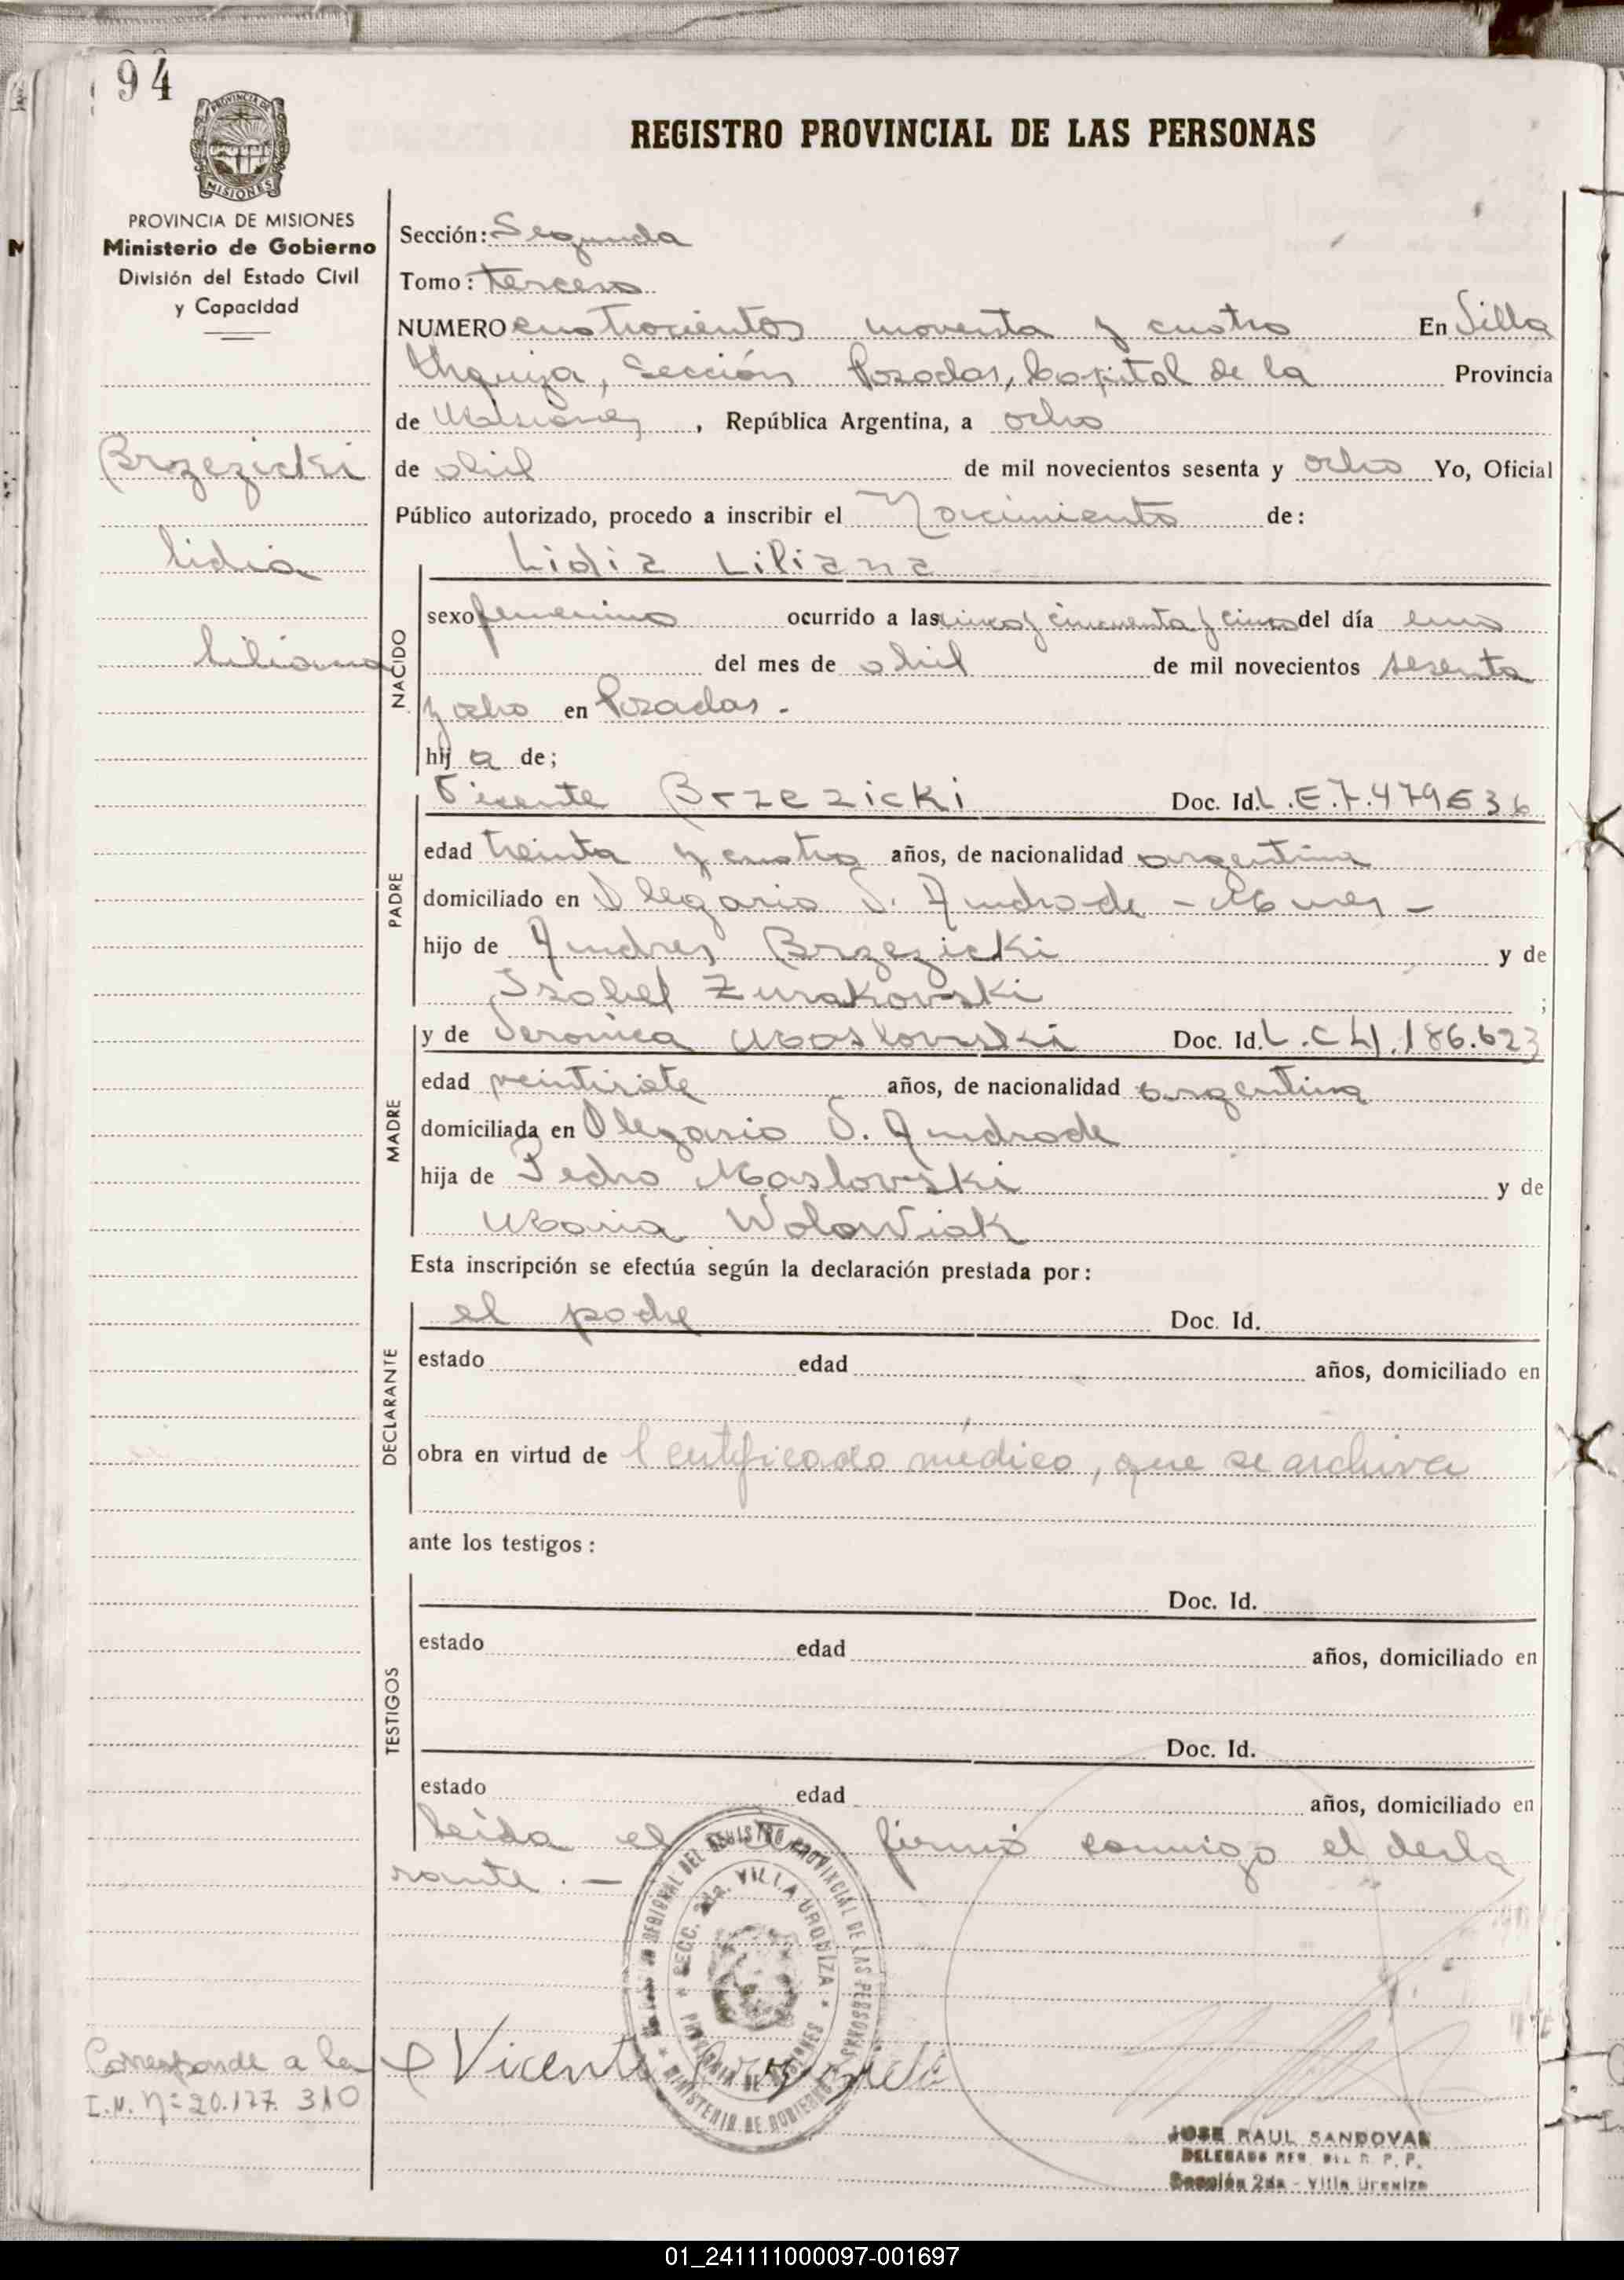 94
REGISTRO PROVINCIAL DE LAS PERSONAS
PROVINCIA DE MISIONES
Ministerio de Gobierno
División del Estado Civil
y Capacidad
Brzezicki
Lidia
Liliana
Sección: Segunda
Tomo: tercero
NUMERO cuatrocientos noventa y cuatro En Villa
Urquiza, Sección Posadas, Capital de la Provincia
de Misiones, República Argentina, a ocho
de abril de mil novecientos sesenta y ocho Yo, Oficial
Público autorizado, procedo a inscribir el Nacimiento de:
NACIDO
Lidia Liliana
sexo femenino ocurrido a las cinco y cincuenta y cinco del día uno
del mes de abril de mil novecientos sesenta
y ocho en Posadas.-
hij a de;
PADRE
Vicente Brzezicki Doc. Id. L.E.7.479536
edad treinta y cuatro años, de nacionalidad argentina
domiciliado en Olegario V. Andrade - Mnes -
hijo de Andres Brzezicki y de
Isabel Zurakovski ;
MADRE
y de Veronica Maslowski Doc. Id. L.C 4.186.623
edad veintisiete años, de nacionalidad argentina
domiciliada en Olegario V. Andrade
hija de Pedro Maslovski y de
Maria Wolowiak
Esta inscripción se efectúa según la declaración prestada por:
DECLARANTE
el padre Doc. Id.
estado edad años, domiciliado en
obra en virtud de Certificado médico, que se archiva
ante los testigos:
TESTIGOS
Doc. Id.
estado edad años, domiciliado en
Doc. Id.
estado edad años, domiciliado en
Leida el firmó conmigo el decla
rante.-
REGIONAL DEL REGISTRO PROVINCIAL DE LAS PERSONAS
SECC. 2da. VILLA URQUIZA
PROVINCIA DE MISIONES
MINISTERIO DE GOBIERNO
Vicente Brzezicki
Corresponde a la
I.N. Nº 20.177.310
JOSE RAUL SANDOVAL
DELEGADO REG. DEL R. P. P.
Sección 2da - Villa Urquiza
01_241111000097-001697